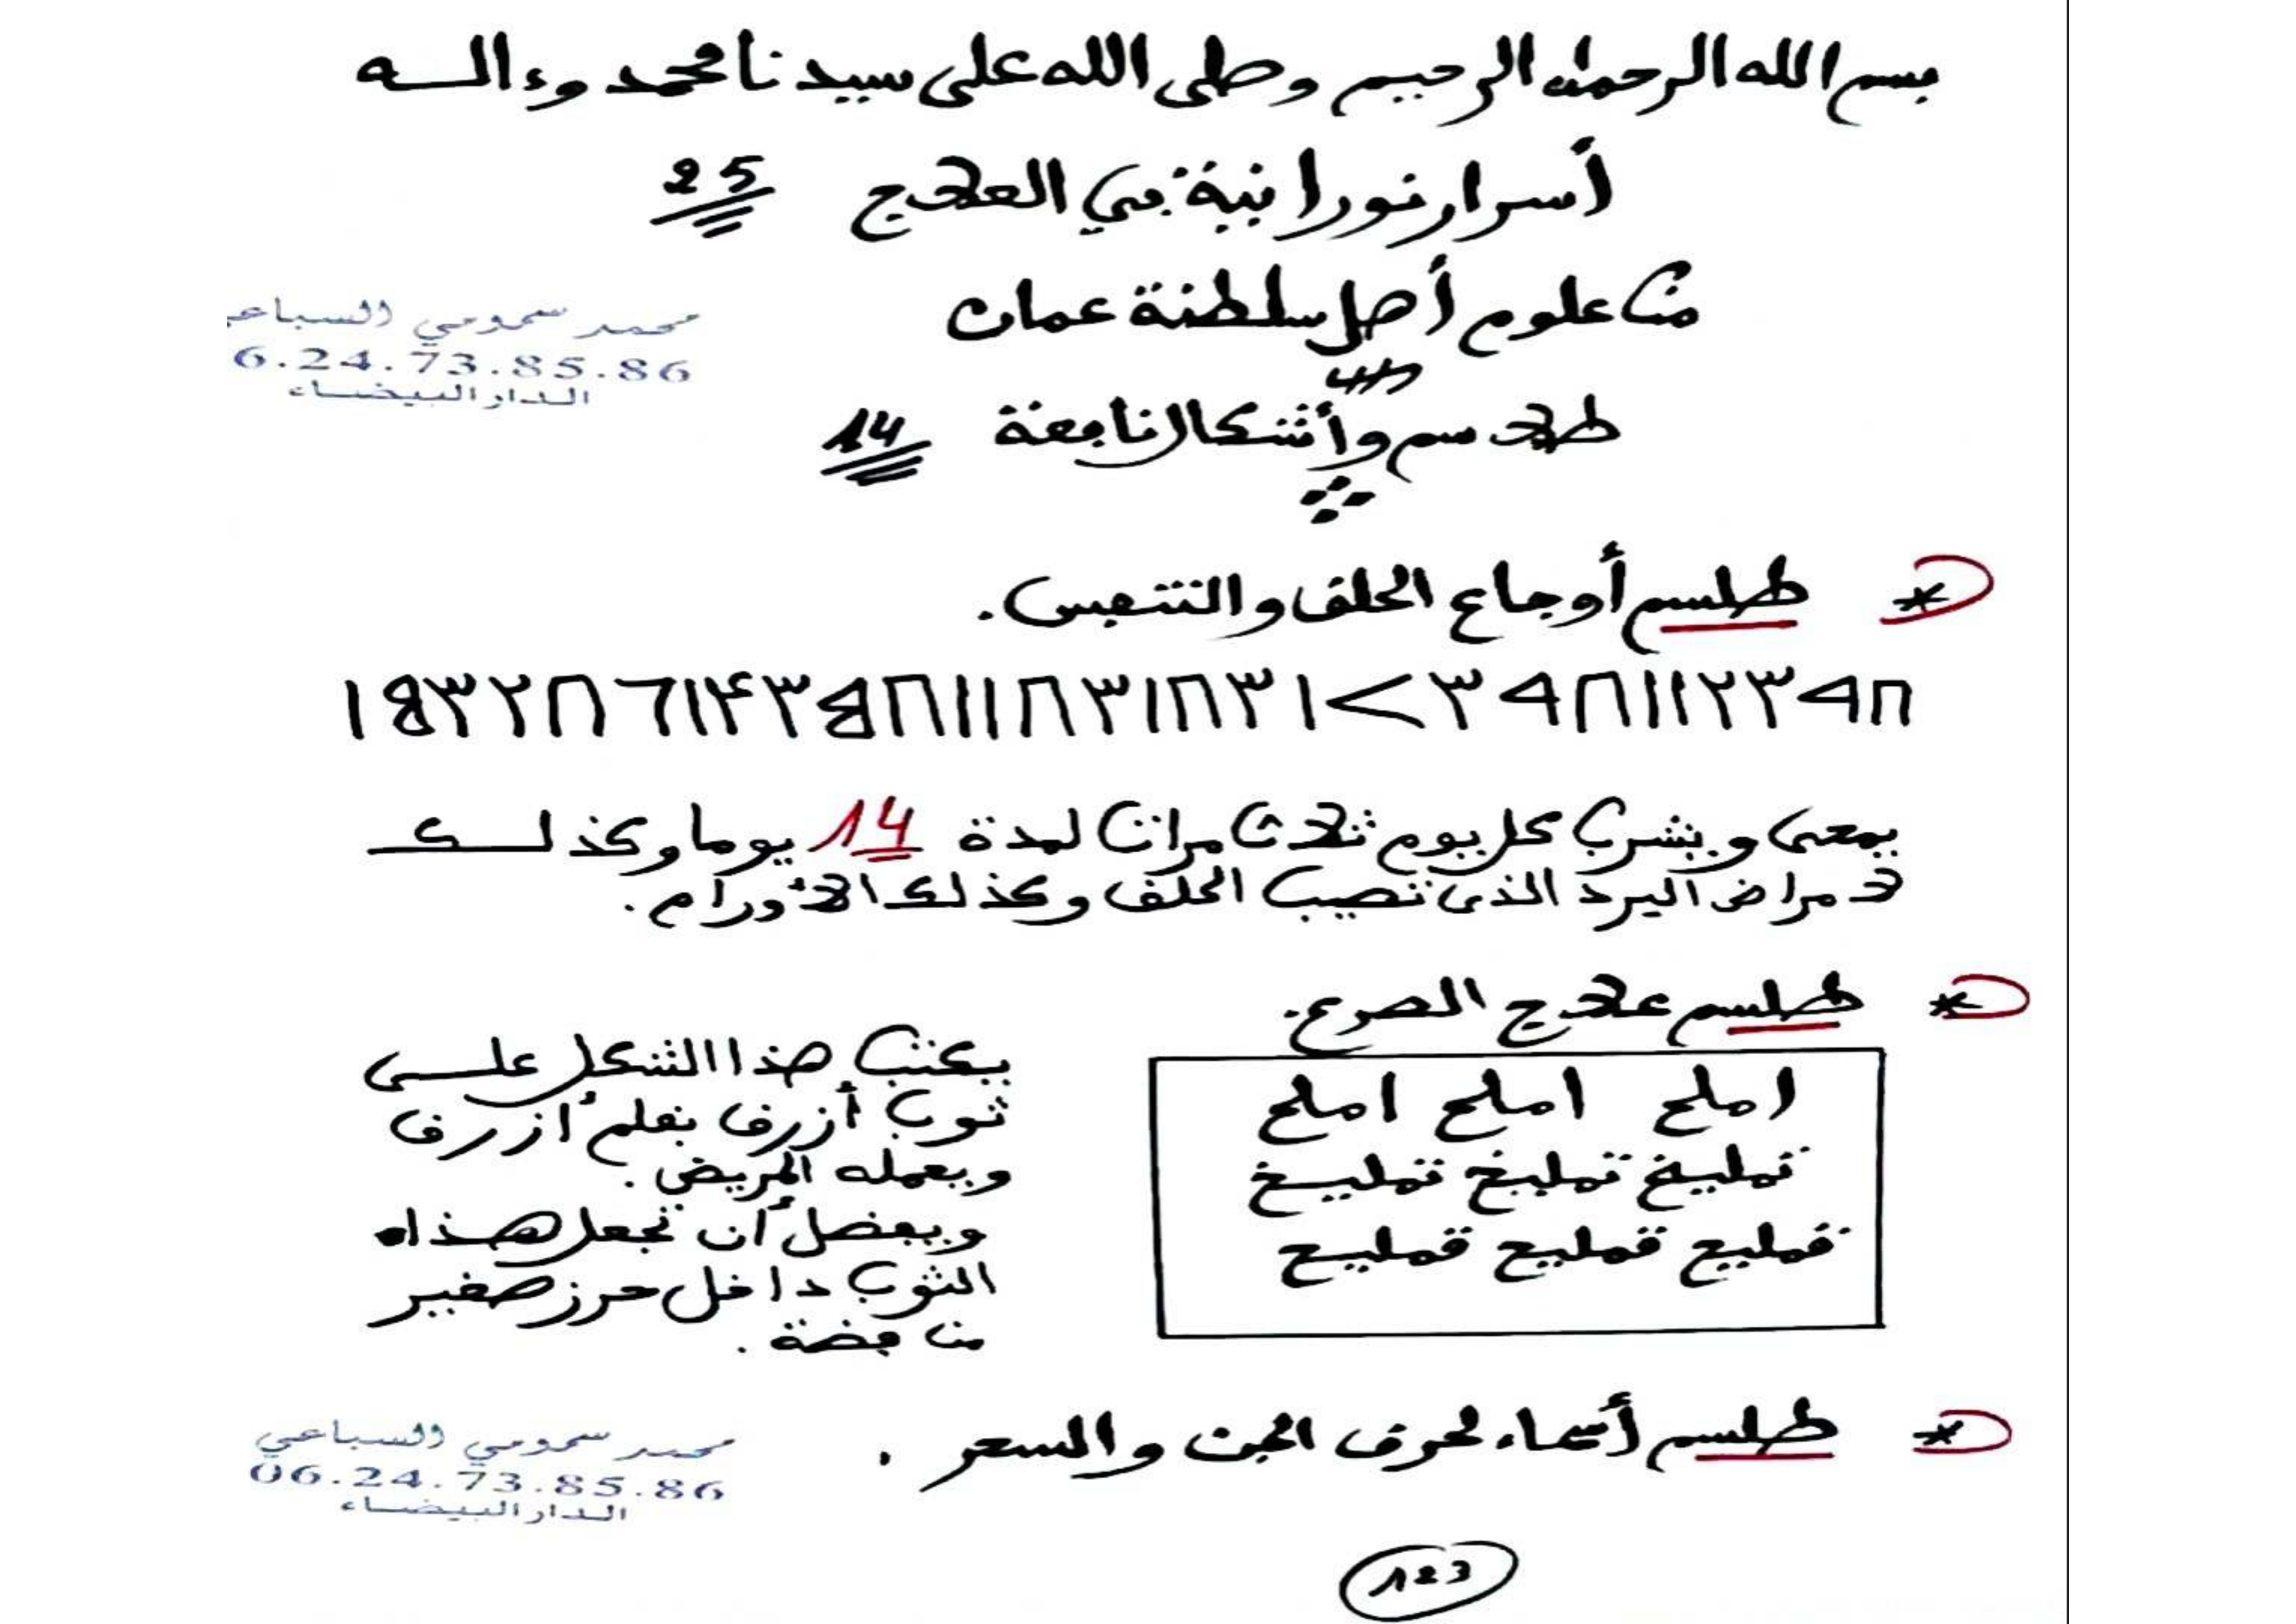 بسم الله الرحمان الرحيم وصلى الله على سيدنا محمد وءاله
أسرار نورانية في العلاج 25
من علوم أهل سلطنة عمان
طلاسم وأشكال نافعة 14
محمد سمومي السباعي
6.24.73.85.86
الدار البيضاء
* طلسم أوجاع الحلق والتنفس.
يمحى ويشرب كل يوم ثلاث مرات لمدة 14 يوما وكذلك
لامراض البرد الذي تصيب الحلق وكذلك الأورام.
* طلسم علاج الصرع.
املح املح املح
تمليخ تمليخ تمليخ
قمليع قمليع قمليع
يكتب هذا الشكل على
ثوب أزرق بقلم أزرق
ويحمله المريض.
ويفضل أن تجعل هذا
الثوب داخل حرز صغير
من فضة.
* طلسم أسماء لحرق الجن والسحر.
محمد سمومي السباعي
06.24.73.85.86
الدار البيضاء
123